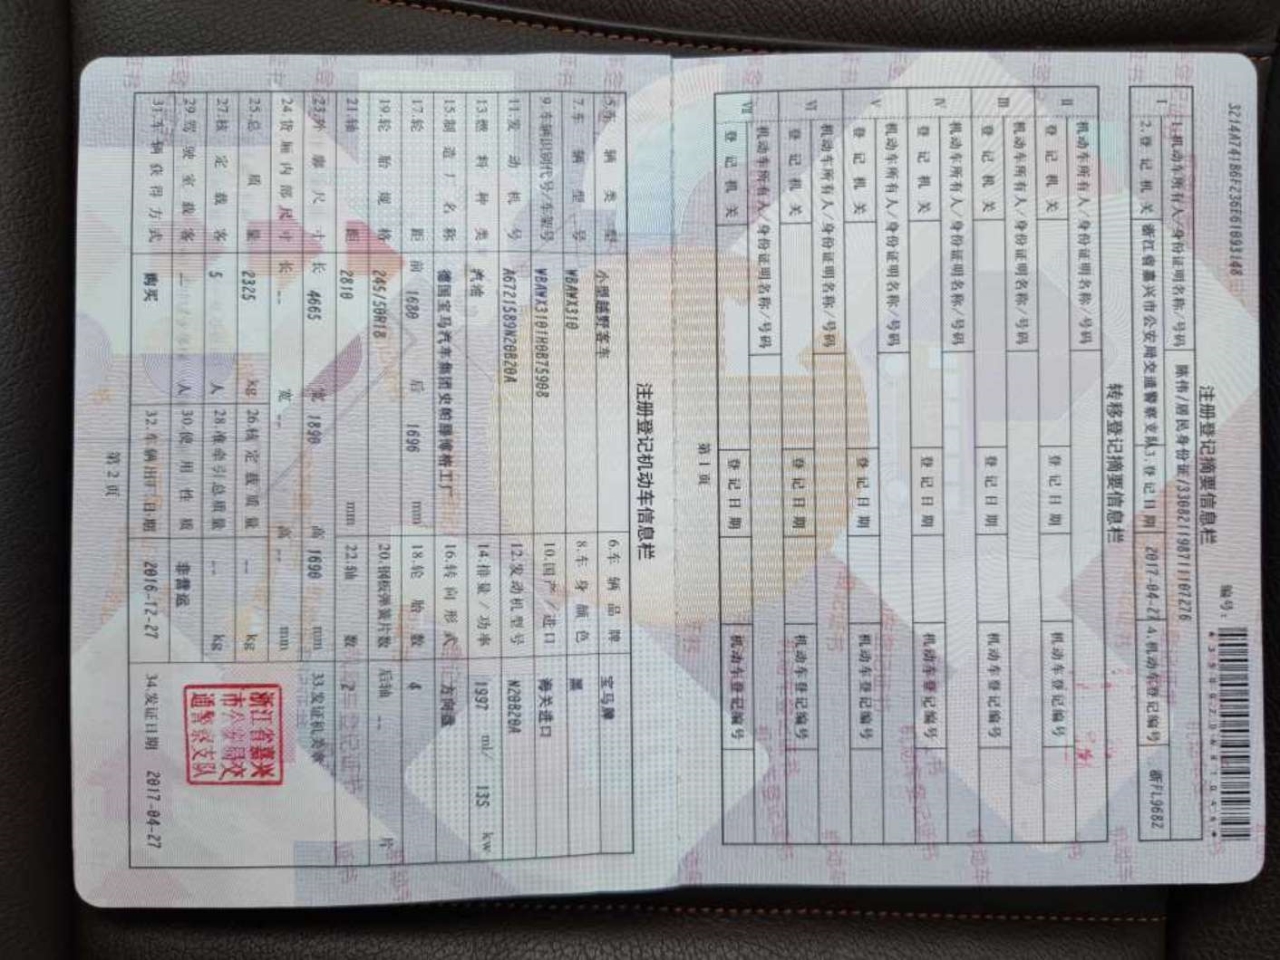 3214A741B6F236E61093148
编号:
注册登记摘要信息栏
I 1.机动车所有人/身份证明名称/号码 陈伟/居民身份证/330821198711107276
2.登记机关 浙江省嘉兴市公安局交通警察支队 3.登记日期 2017-04-27 4.机动车登记编号 浙FL968Z
转移登记摘要信息栏
II 机动车所有人/身份证明名称/号码
登记机关 登记日期 机动车登记编号
III 机动车所有人/身份证明名称/号码
登记机关 登记日期 机动车登记编号
IV 机动车所有人/身份证明名称/号码
登记机关 登记日期 机动车登记编号
V 机动车所有人/身份证明名称/号码
登记机关 登记日期 机动车登记编号
VI 机动车所有人/身份证明名称/号码
登记机关 登记日期 机动车登记编号
VII 机动车所有人/身份证明名称/号码
登记机关 登记日期 机动车登记编号
第1页
注册登记机动车信息栏
5.车辆类型 小型越野客车 6.车辆品牌 宝马牌
7.车辆型号 WBAWX310 8.车身颜色 黑
9.车辆识别代号/车架号 WBAWX3101H0B75908 10.国产/进口 海关进口
11.发动机号 A6721589N20B20A 12.发动机型号 N20B20A
13.燃料种类 汽油 14.排量/功率 1997 ml/ 135 kw
15.制造厂名称 德国宝马汽车集团史帕滕博格工厂 16.转向形式 方向盘
17.轮距 前 1600 后 1696 mm 18.轮胎数 4
19.轮胎规格 245/50R18 20.钢板弹簧片数 后轴 -- 片
21.轴距 2810 mm 22.轴数 2
23.外廓尺寸 长 4665 宽 1890 高 1690 mm 33.发证机关章
24.货厢内部尺寸 长 -- 宽 -- 高 -- mm
25.总质量 2325 kg 26.核定载质量 -- kg
27.核定载客 5 人 28.准牵引总质量 -- kg
29.驾驶室载客 -- 人 30.使用性质 非营运
31.车辆获得方式 购买 32.车辆出厂日期 2016-12-27 34.发证日期 2017-04-27
浙江省嘉兴
市公安局交
通警察支队
第2页